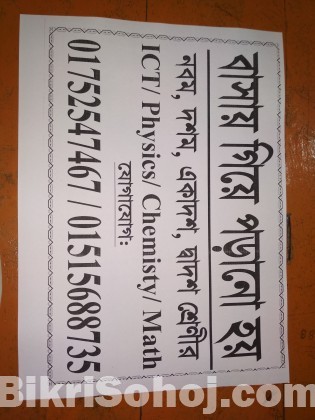 বাসায় গিয়ে পড়ানো হয়
নবম, দশম, একাদশ, দ্বাদশ শ্রেণীর
ICT/ Physics/ Chemisty/ Math
যোগাযোগঃ
01752547467 / 01515688735
BikriSohoj.com